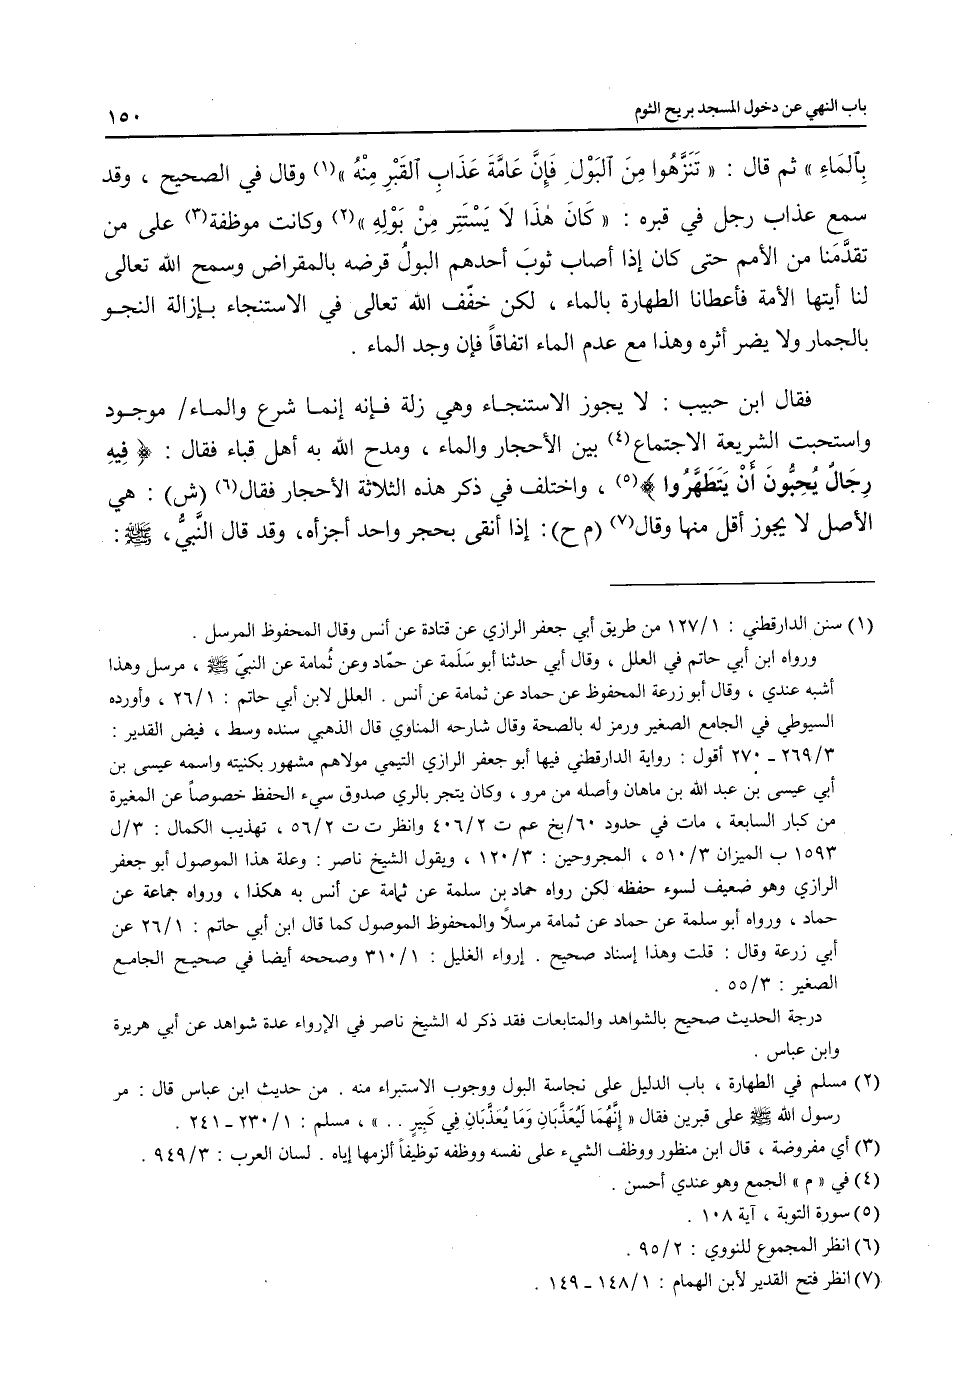 باب النهي عن دخول المسجد بريح الثوم
١٥٠
بِالمَاءِ » ثم قال : « تَنَزَّهُوا مِنَ البَوْلِ فَإِنَّ عَامَّةَ عَذَابِ القَبْرِ مِنْهُ »(١) وقال في الصحيح ، وقد
سمع عذاب رجل في قبره : « كَانَ هٰذَا لَا يَسْتَتِر مِنْ بَوْلِهِ »(٢) وكانت موظفة(٣) على من
تقدَّمَنا من الأمم حتى كان إذا أصاب ثوبَ أحدهم البولُ قرضه بالمقراض وسمح الله تعالى
لنا أيتها الأمة فأعطانا الطهارة بالماء ، لكن خفّف الله تعالى في الاستنجاء بـإزالة النجـو
بالجمار ولا يضر أثره وهذا مع عدم الماء اتفاقاً فإن وجد الماء .
فقال ابن حبيب : لا يجوز الاستنجـاء وهي زلة فـإنه إنمـا شرع والمـاء/ موجـود
واستحبت الشريعة الاجتماع(٤) بين الأحجار والماء ، ومدح الله به أهل قباء فقال : ﴿ فِيهِ
رِجَالٌ يُحِبُّونَ أَنْ يَتَطَهَّرُوا ﴾(٥) ، واختلف في ذكر هذه الثلاثة الأحجار فقال(٦) (ش) : هي
الأصل لا يجوز أقل منها وقال(٧) (م ح): إذا أنقى بحجر واحد أجزأه، وقد قال النَّبيُّ، ﷺ :
(١) سنن الدارقطني : ١٢٧/١ من طريق أبي جعفر الرازي عن قتادة عن أنس وقال المحفوظ المرسل .
ورواه ابن أبي حاتم في العلل ، وقال أبي حدثنا أبو سَلَمة عن حمّاد وعن ثُمامة عن النبيّ ﷺ ، مرسل وهذا
أشبه عندي ، وقال أبو زرعة المحفوظ عن حماد عن ثمامة عن أنس . العلل لابن أبي حاتم : ٢٦/١ ، وأورده
السيوطي في الجامع الصغير ورمز له بالصحة وقال شارحه المناوي قال الذهبي سنده وسط ، فيض القدير :
٢٦٩/٣ - ٢٧٠ أقول : رواية الدارقطني فيها أبو جعفر الرازي التيمي مولاهم مشهور بكنيته واسمه عيسى بن
أبي عيسى بن عبد الله بن ماهان وأصله من مرو ، وكان يتجر بالري صدوق سيء الحفظ خصوصاً عن المغيرة
من كبار السابعة ، مات في حدود ٦٠/بخ عم ت ٤٠٦/٢ وانظر ت ت ٥٦/٢ ، تهذيب الكمال : ٣/ل
١٥٩٣ ب الميزان ٥١٠/٣ ، المجروحين : ١٢٠/٣ ، ويقول الشيخ ناصر : وعلة هذا الموصول أبو جعفر
الرازي وهو ضعيف لسوء حفظه لكن رواه حماد بن سلمة عن ثمامة عن أنس به هكذا ، ورواه جماعة عن
حماد ، ورواه أبو سلمة عن حماد عن ثمامة مرسلاً والمحفوظ الموصول كما قال ابن أبي حاتم : ٢٦/١ عن
أبي زرعة وقال : قلت وهذا إسناد صحيح . إرواء الغليل : ٣١٠/١ وصححه أيضا في صحيـح الجامـع
الصغير : ٥٥/٣ .
درجة الحديث صحيح بالشواهد والمتابعات فقد ذكر له الشيخ ناصر في الإرواء عدة شواهد عن أبي هريرة
وابن عباس .
(٢) مسلم في الطهارة ، باب الدليل على نجاسة البول ووجوب الاستبراء منه . من حديث ابن عباس قال : مر
رسول الله ﷺ على قبرين فقال « إِنَّهُمَا لَيُعَذَّبَانِ وَمَا يُعَذَّبَانِ فِي كَبِيرٍ . . » ، مسلم : ٢٣٠/١ - ٢٤١ .
(٣) أي مفروضة ، قال ابن منظور ووظف الشيء على نفسه ووظفه توظيفاً ألزمها إياه . لسان العرب : ٩٤٩/٣ .
(٤) في « م » الجمع وهو عندي أحسن .
(٥) سورة التوبة ، آية ١٠٨ .
(٦) انظر المجموع للنووي : ٩٥/٢ .
(٧) انظر فتح القدير لأبن الهمام : ١٤٨/١ - ١٤٩ .